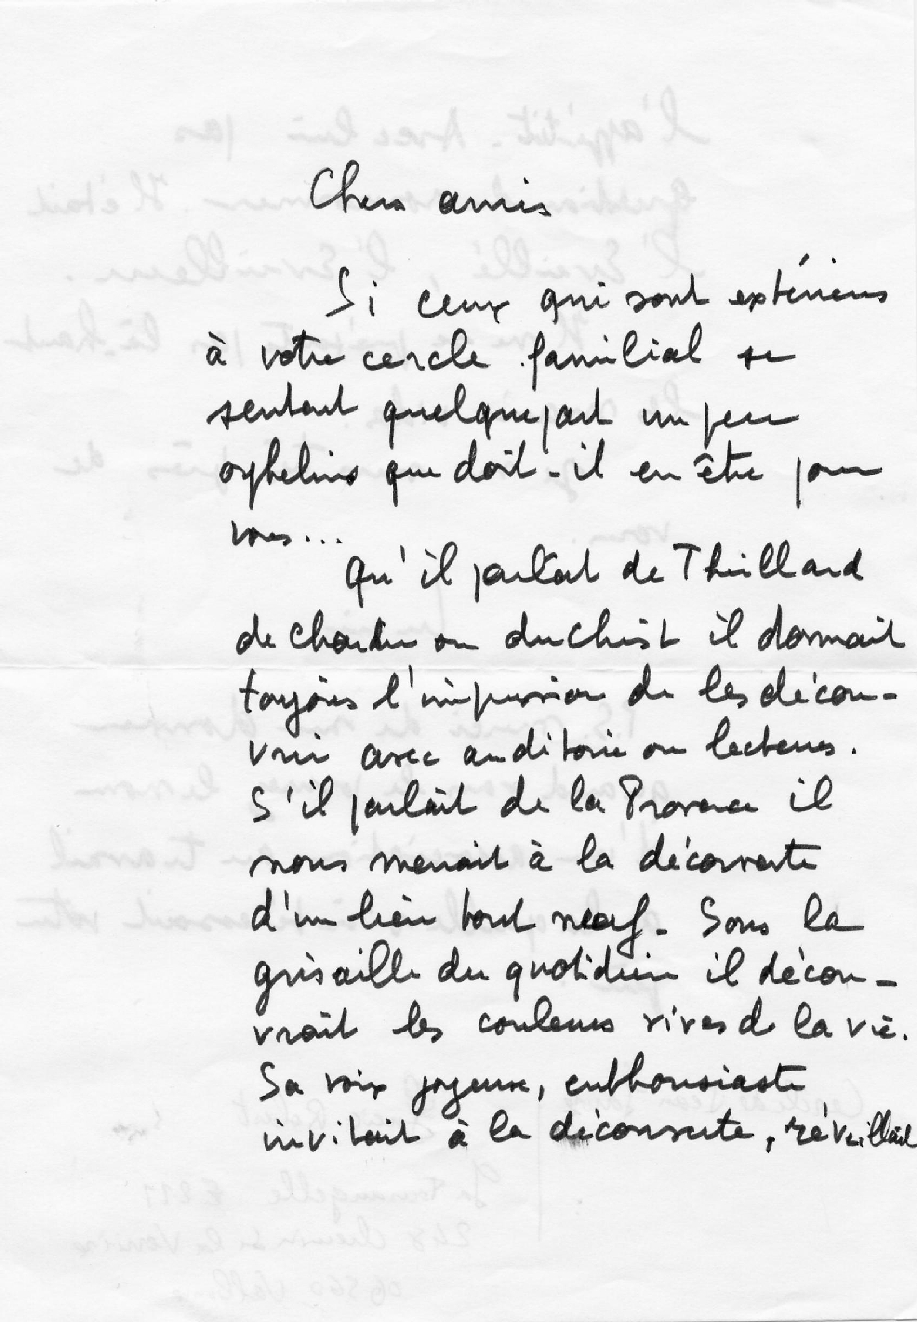 Chers amis
Si ceux qui sont extérieurs
à votre cercle familial se
sentent quelque part un peu
orphelins que doit-il en être pour
vous...
Qu'il parlât de Theillard
de Chardin ou du Christ il donnait
toujours l'impression de les décou-
vrir avec auditoire ou lecteurs.
S'il parlait de la Provence il
nous menait à la découverte
d'un lieu tout neuf. Sous la
grisaille du quotidien il décou-
vrait les couleurs vives de la vie.
Sa voix joyeuse, enthousiaste
invitait à la découverte, réveillait